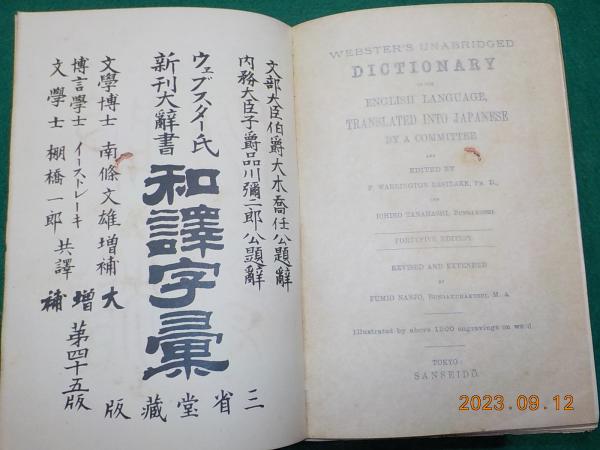 文部大臣伯爵大木喬任公題辭
内務大臣子爵品川彌二郎公題辭
ウェブスター氏
新刊大辭書
和譯字彙
文學博士 南條文雄增補
博言學士 イーストレーキ
文學士 棚橋一郎 共譯
大增補 第四十五版
三省堂藏版
WEBSTER'S UNABRIDGED
DICTIONARY
OF THE
ENGLISH LANGUAGE,
TRANSLATED INTO JAPANESE
BY A COMMITTEE
AND
EDITED BY
F. WARRINGTON EASTLAKE, PH. D.,
AND
ICHIRO TANAHASHI, BUNGAKUSHI.
FORTYFIVE EDITION.
REVISED AND EXTENDED
BY
FUMIO NANJO, BUNGAKUHAKUSHI, M. A.
Illustrated by above 1200 engravings on wood
TOKYO:
SANSEIDŌ.
2023.09.12